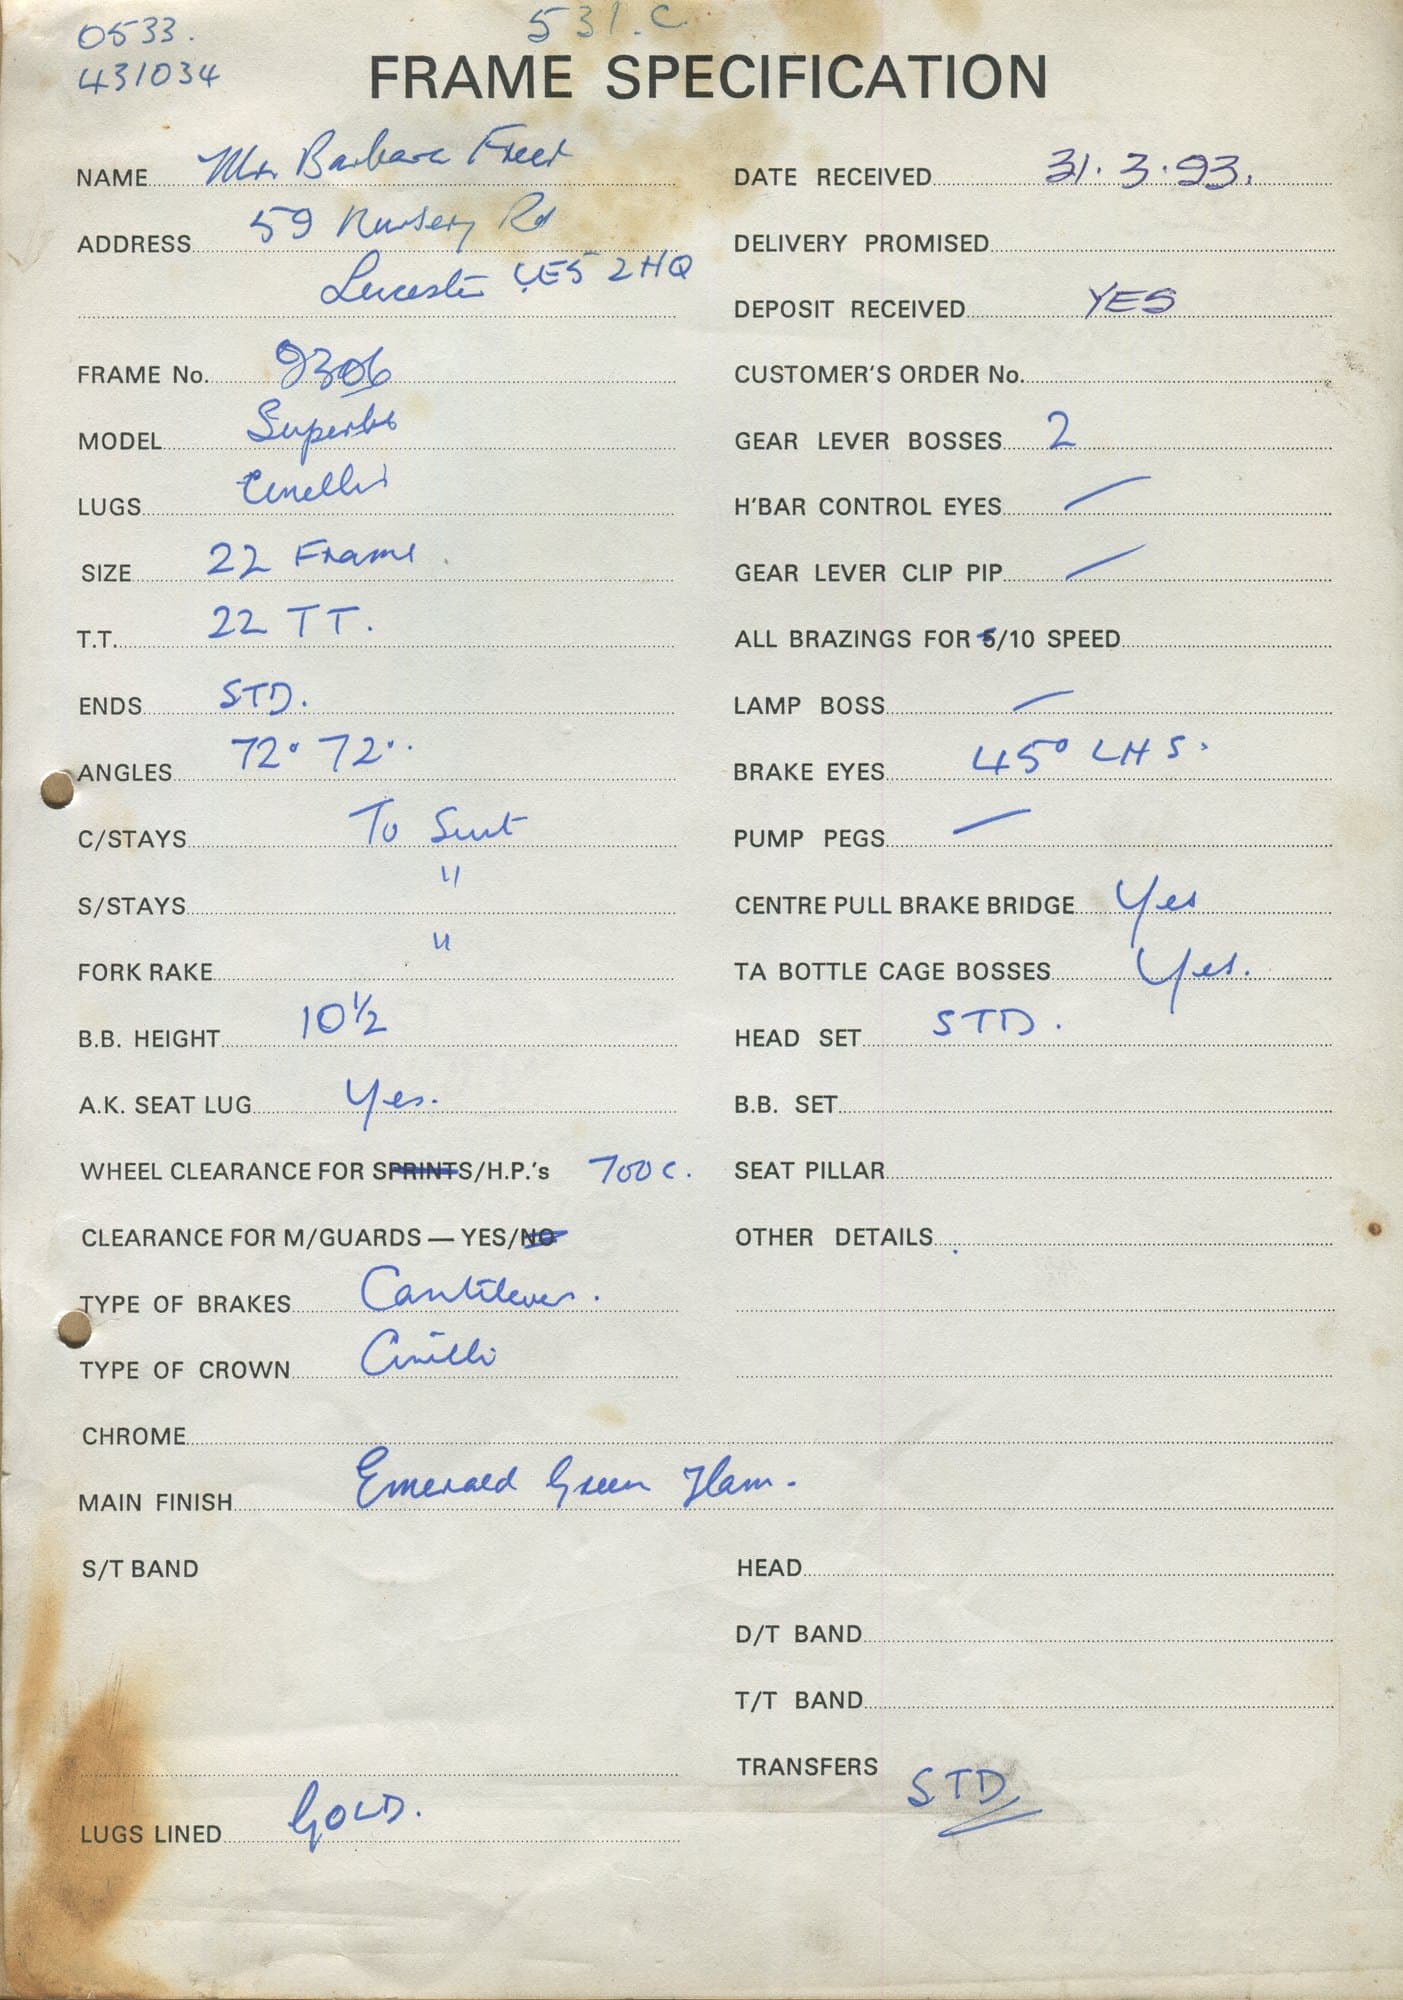 0533.
431034
531.C
FRAME SPECIFICATION
NAME Mrs. Barbara Freer
ADDRESS 59 Nursery Rd
Leicester LE5 2HQ
FRAME No. 9306
MODEL Superbe
LUGS Cinelli
SIZE 22 Frame
T.T. 22 TT.
ENDS STD.
ANGLES 72° 72°.
C/STAYS To Suit
S/STAYS "
FORK RAKE "
B.B. HEIGHT 10 1/2
A.K. SEAT LUG Yes.
WHEEL CLEARANCE FOR SPRINTS/H.P.'s 700c.
CLEARANCE FOR M/GUARDS — YES/NO
TYPE OF BRAKES Cantilever.
TYPE OF CROWN Cinelli
DATE RECEIVED 31.3.93.
DELIVERY PROMISED
DEPOSIT RECEIVED YES
CUSTOMER'S ORDER No.
GEAR LEVER BOSSES 2
H'BAR CONTROL EYES —
GEAR LEVER CLIP PIP —
ALL BRAZINGS FOR 5/10 SPEED
LAMP BOSS —
BRAKE EYES 45° LHS.
PUMP PEGS —
CENTRE PULL BRAKE BRIDGE Yes
TA BOTTLE CAGE BOSSES Yes.
HEAD SET STD.
B.B. SET
SEAT PILLAR
OTHER DETAILS
CHROME
MAIN FINISH Emerald Green Flam.
S/T BAND
LUGS LINED GOLD.
HEAD
D/T BAND
T/T BAND
TRANSFERS STD